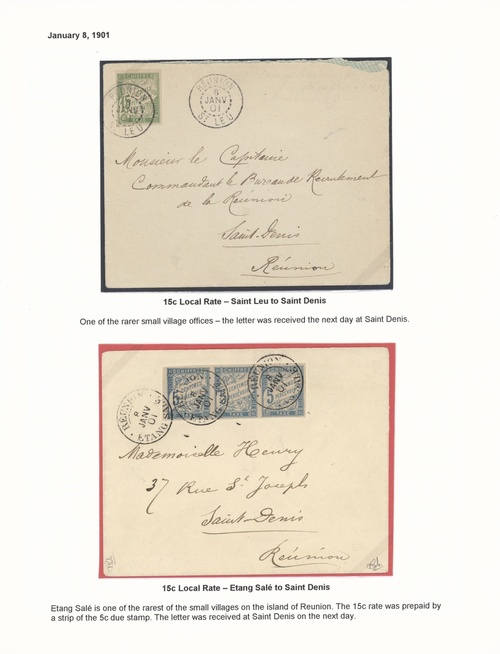 January 8, 1901
RÉUNION
8
JANV
01
ST LEU
RÉUNION
8
JANV
01
ST LEU
Monsieur le Capitaine
Commandant le Bureau de Recrutement
de la Réunion
Saint-Denis
Réunion
15c Local Rate – Saint Leu to Saint Denis
One of the rarer small village offices – the letter was received the next day at Saint Denis.
CHIFFRE
TAXE
RÉUNION
8
JANV
01
ETANG
8
JANV
01
Mademoiselle Henry
37 Rue St Joseph
Saint-Denis
Réunion
15c Local Rate – Etang Salé to Saint Denis
Etang Salé is one of the rarest of the small villages on the island of Reunion. The 15c rate was prepaid by
a strip of the 5c due stamp. The letter was received at Saint Denis on the next day.